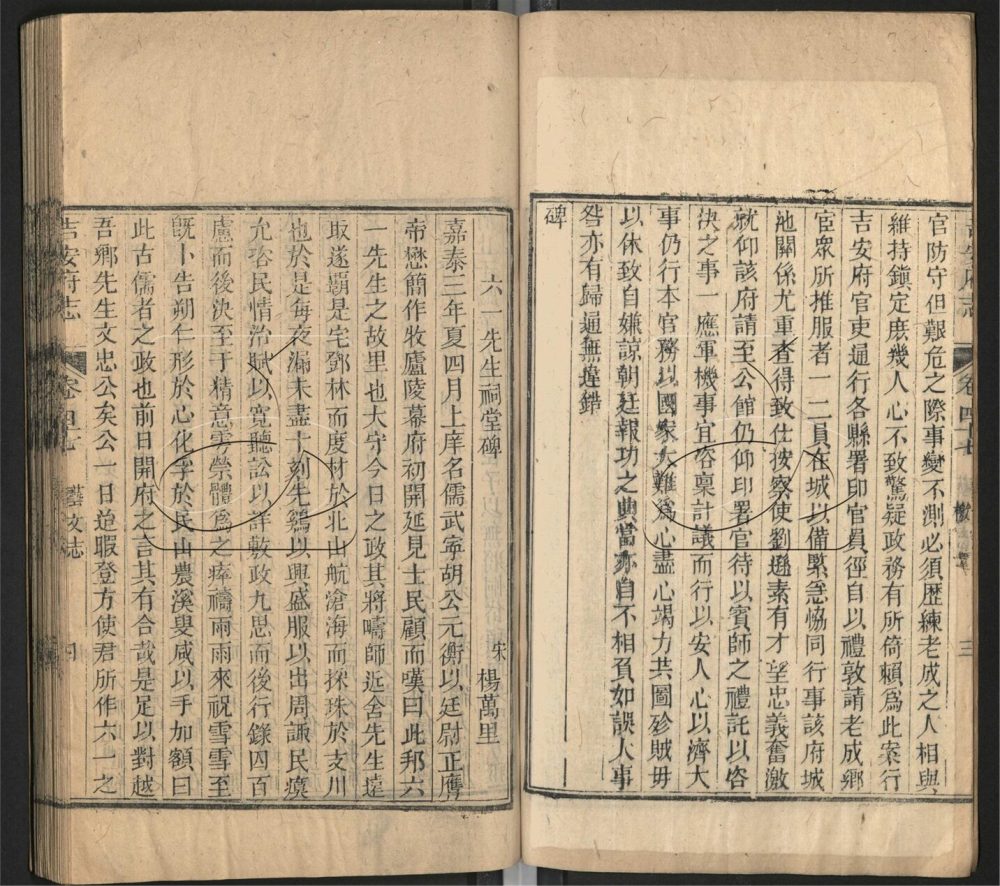 官防守但艱危之際事變不測必須歷練老成之人相與
維持鎭定庶幾人心不致驚疑政務有所倚賴爲此案行
吉安府官吏通行各縣署印官員徑自以禮敦請老成鄉
宦衆所推服者一二員在城以備緊急恊同行事該府城
池關係尤重查得致仕按察使劉遜素有才望忠義奮激
就仰該府請至公館仍仰印署官待以賓師之禮託以咨
決之事一應軍機事宜咨稟計議而行以安人心以濟大
事仍行本官務以國家大難爲心盡心竭力共圖殄賊毋
以休致自嫌諒朝廷報功之典當亦自不相負如誤大事
咎亦有歸通無違錯
碑
吉安府志
卷四十七
三
六一先生祠堂碑
宋 楊萬里
嘉泰三年夏四月上庠名儒武寧胡公元衡以廷尉正膺
帝懋簡作牧廬陵幕府初開延見士民顧而嘆曰此邦六
一先生之故里也大守今日之政其將疇師近舍先生遠
取遂覇是宅鄧林而度材於北山航滄海而探珠於支川
也於是每夜漏未盡十刻先鷄以興盛服以出周諏民瘼
允咨民情治賦以寬聽訟以詳敷政九思而後行錄囚百
慮而後決至于精意雩禜體爲之瘁禱雨雨來祝雪雪至
旣卜告朔仁形於心化孚於民山農溪叟咸以手加額曰
此古儒者之政也前日開府之言其有合哉是足以對越
吾鄉先生文忠公矣公一日迨暇登方使君所作六一之
吉安府志
卷四十七
藝文志
四